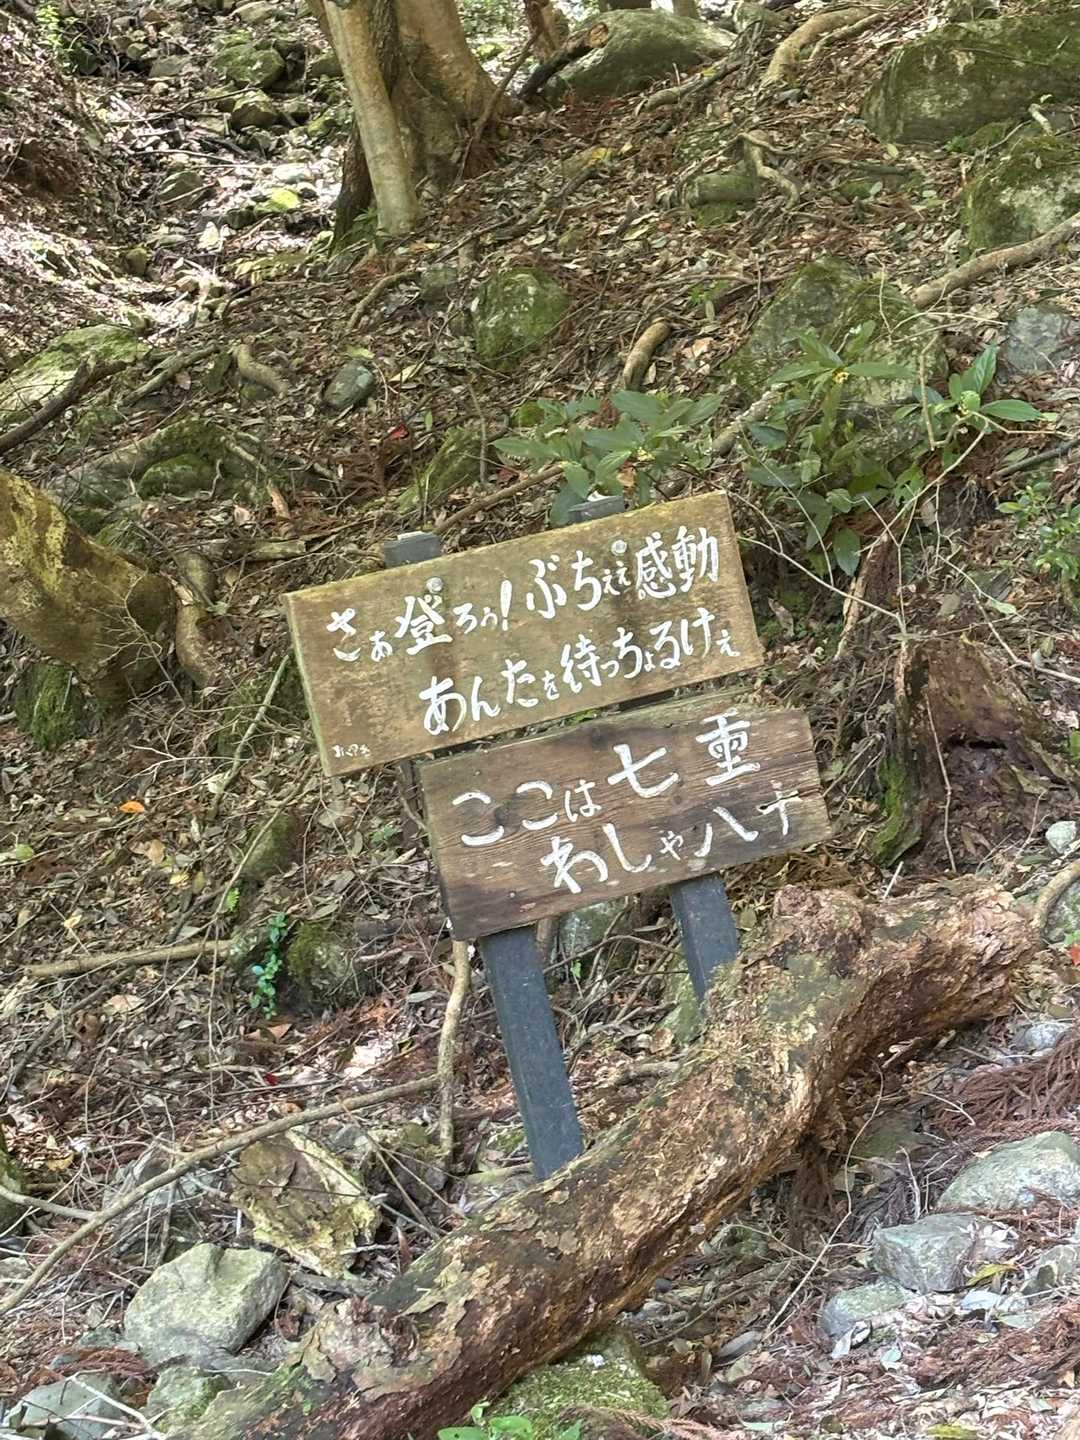 さぁ登ろう！ぶちぇぇ感動
あんたを待っちょるけぇ
ここは七重
わしゃ八十